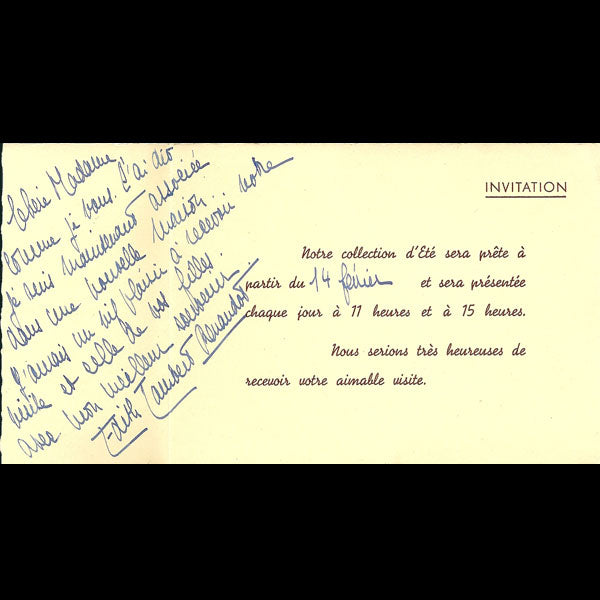 Chère Madame
Comme je vous l'ai dit
je suis maintenant associée
dans une nouvelle maison.
J'aurais un vif plaisir à recevoir votre
visite et celle de vos filles.
avec mon meilleur souvenir.
Edith Lambert Renaudot
INVITATION
Notre collection d'Eté sera prête à
partir du 14 février et sera présentée
chaque jour à 11 heures et à 15 heures.
Nous serions très heureuses de
recevoir votre aimable visite.